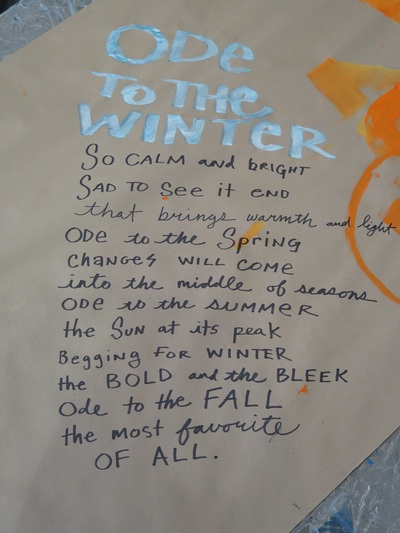 ODe
TO THe
WINTER
SO CALM and bRIGHT
SAD TO See it eND
that brings warmth and light
ODe to the Spring
cHANGes WILL COMe
into the middle of seasons
ODe to the SUMMER
the SUN at its peak
Begging FOR WINTER
the BOLD and the BLEEK
Ode to the FALL
the most favorite
OF ALL.